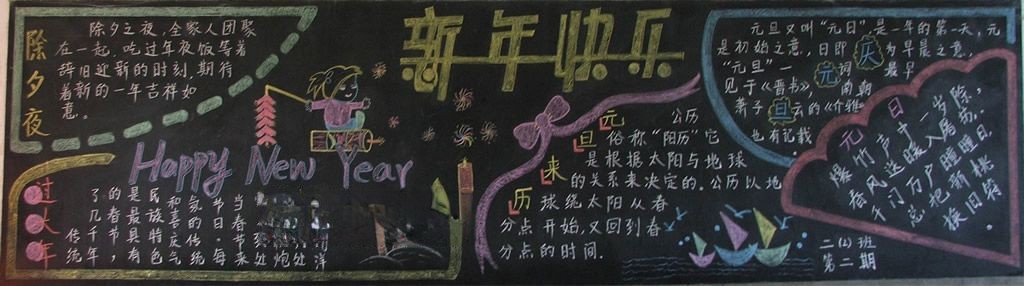 除夕夜
除夕之夜，全家人团聚
在一起，吃过年夜饭等着
辞旧迎新的时刻，期待
着新的一年吉祥如
意。
新年快乐
Happy New Year
过大年
传统
了几千年
的春节，
是最具有
民族特色
和喜庆气
氛的传统
节日。每
当春节来
元旦来历
公历
俗称“阳历”它
是根据太阳与地球
的关系来决定的。公历以地
球绕太阳从春
分点开始，又回到春
分点的时间.
元旦又叫“元日”是一年的第一天，元
是初始之意，日即为早晨之意.
“元旦”一词最早
见于《晋书》，南朝
萧子云的《介雅
也有记载
庆元旦
元日
爆竹声中一岁除，
春风送暖入屠苏。
千门万户曈曈日，
总把新桃
换旧符。
二(2)班
第二期